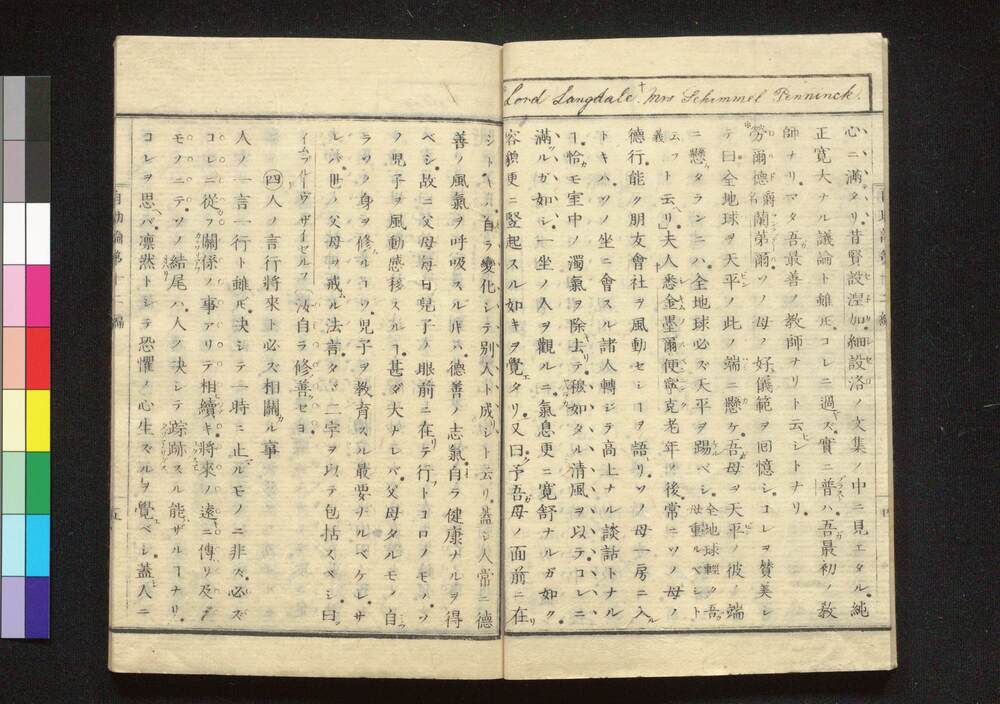 Lord Langdale. † Mrs Schimmel Penninck.
心ニ滿タリ昔賢設涅加細設洛ノ文集ノ中ニ見エタル純
正寛大ナル議論ト雖𪜈コレニ過ズ實ニ普ハ吾最初ノ敎
師ナリマタ吾最善ノ教師ナリト云シトナリ
勞爾德蘭第爾ソノ母ノ好儀範ヲ回憶シコレヲ賛美シ
テ曰全地球ヲ天平ノ此ノ端ニ懸ケ吾母ヲ天平ノ彼ノ端
ニ懸タランニハ全地球必ズ天平ヲ踢ベシ全地球輕ク吾母重ルベシト
云フ義ト云リ夫人悉金墨爾便寧克老年ノ後常ニソノ母ノ
德行能ク朋友會社ヲ風動セシヿヲ語リソノ母一房ニ入
トキハソノ坐ニ會スル諸人轉ジテ高上ナル談話トナル
ヿ恰モ室中ノ濁氣ヲ除去テ穆如タル清風ヲ以テコレニ
滿ルガ如シ一坐ノ人ヲ觀ルニ氣息更ニ寛舒ナルガ如ク
容貌更ニ竪起スル如キヲ覺タリ又曰予吾母ノ面前ニ在
シトキハ自ラ變化シテ別人ト成シト云リ蓋シ人常ニ德
善ノ風氣ヲ呼吸スル𪜈ハ德善ノ志氣自ラ健康ナルヲ得
ベシ故ニ父母毎日兒子ノ眼前ニ在テ行フトコロノモノソ
ノ兒子ヲ風動感移スルヿ甚ダ大ナレバ父母タルモノ自
ラソノ身ヲ修ルコソ兒子ヲ教育スル最要ナルベケレサ
レバ世ノ父母ヲ戒ル法言タゞ二字ヲ以テ包括スベシ曰
イムプルーヴ ザイセルフ 汝自ラ修善セヨ
四 人ノ言行將來ト必ズ相關ル事
人ノ一言一行ト雖𪜈決シテ一時ニ止ルモノニ非ズ必ズ
コレニ從フ關係ノ事アリテ相續キ將來ノ遠ニ傳リ及ブ
モノニテソノ結尾ハ人ノ決シテ踪跡スル能ザルヿナリ
コレヲ思バ凛然トシテ恐懼ノ心生ズルヲ覺ベシ蓋人ニ